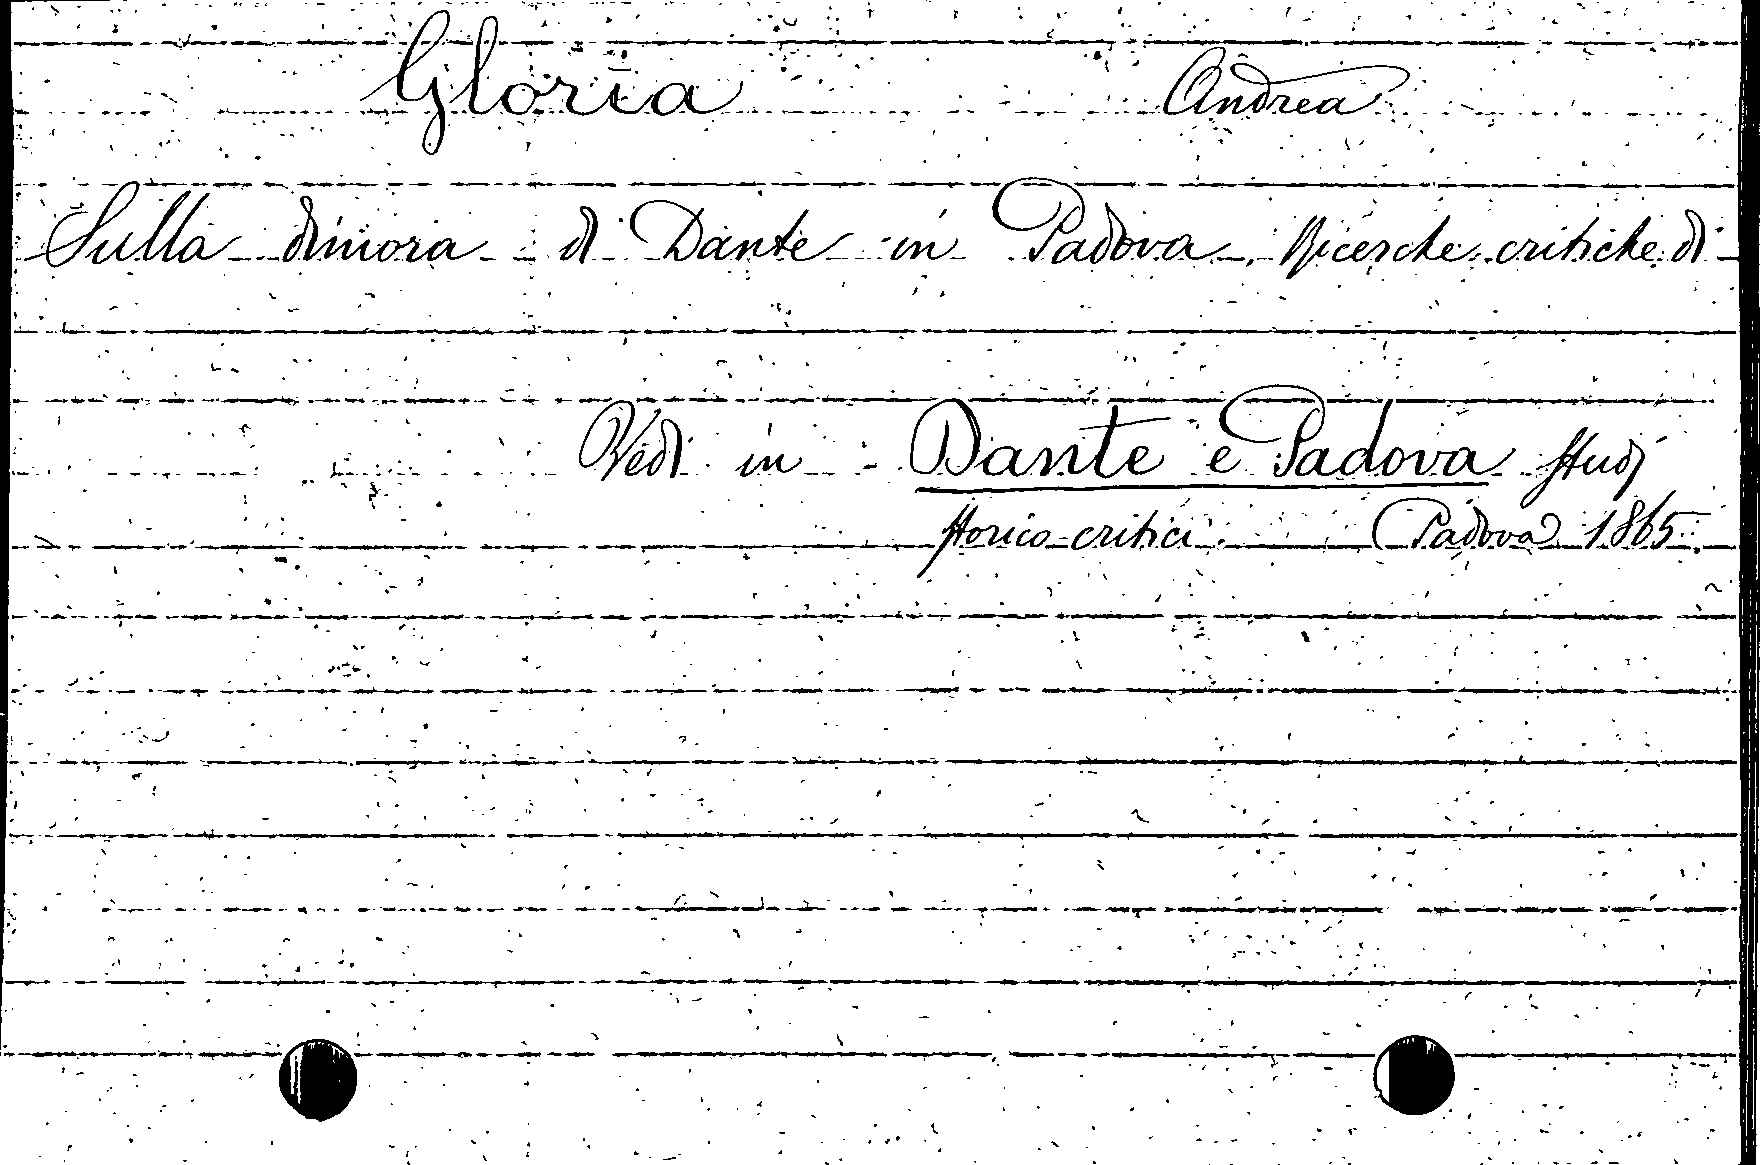 Gloria Andrea
Sulla dimora di Dante in Padova. Ricerche critiche di
Vedi in Dante e Padova studj
storico-critici. Padova 1865.